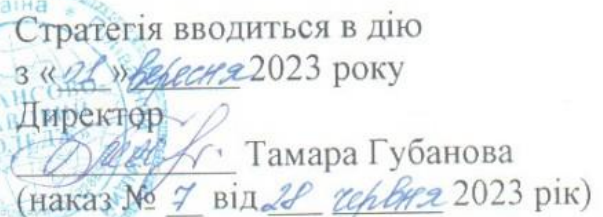 Стратегія вводиться в дію
з «01» вересня 2023 року
Директор
Тамара Губанова
(наказ № 7 від 28 червня 2023 рік)